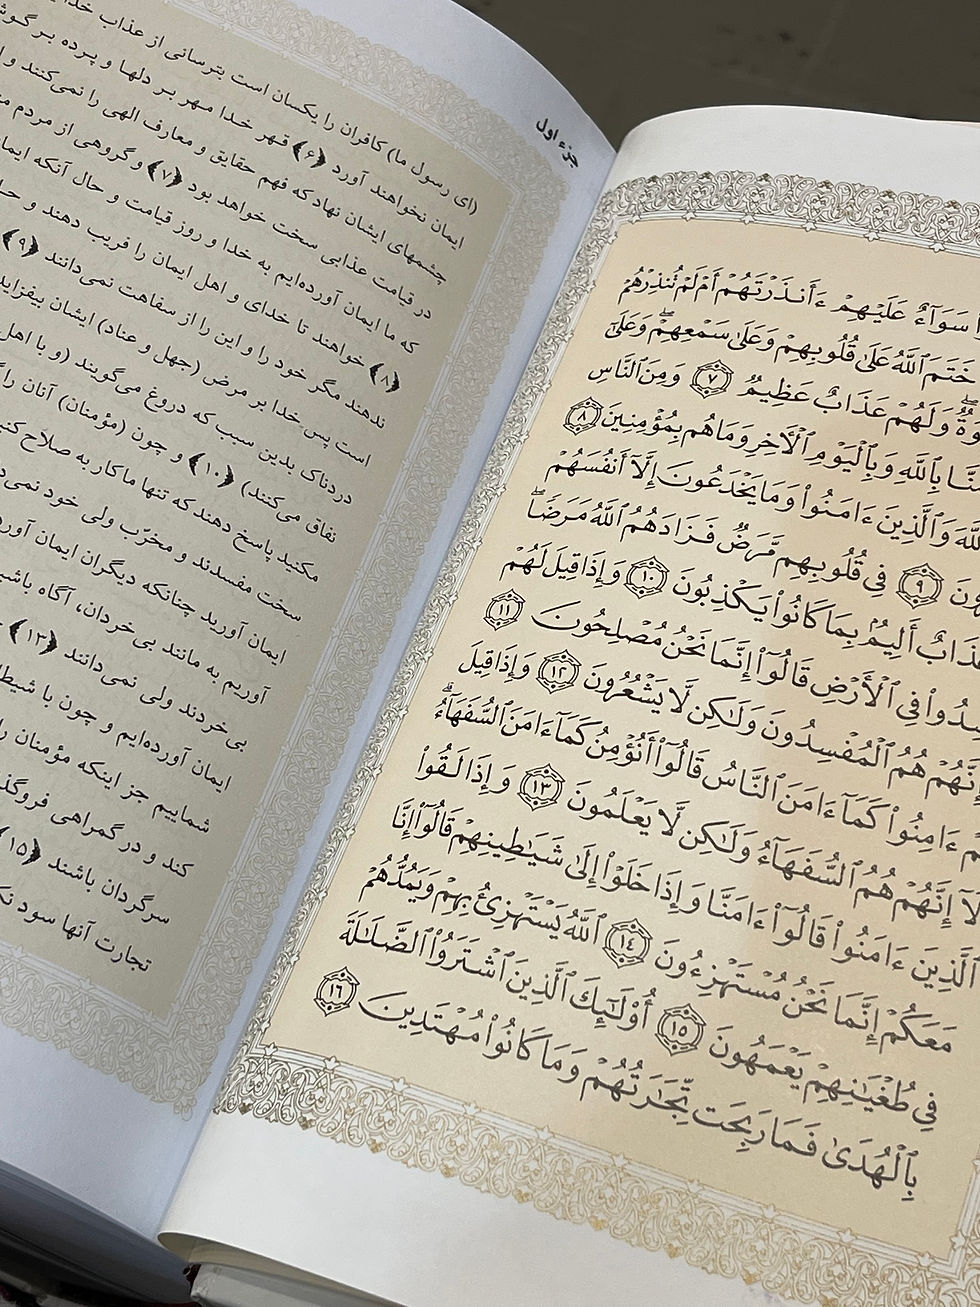 سَوَآءٌ عَلَيْهِمْ ءَأَنذَرْتَهُمْ أَمْ لَمْ تُنذِرْهُمْ
خَتَمَ ٱللَّهُ عَلَىٰ قُلُوبِهِمْ وَعَلَىٰ سَمْعِهِمْ ۖ وَعَلَىٰٓ
وَلَهُمْ عَذَابٌ عَظِيمٌ ٧ وَمِنَ ٱلنَّاسِ
بِٱللَّهِ وَبِٱلْيَوْمِ ٱلْأَخِرِ وَمَا هُم بِمُؤْمِنِينَ ٨
وَٱلَّذِينَ ءَامَنُوا۟ وَمَا يَخْدَعُونَ إِلَّآ أَنفُسَهُمْ
٩ فِى قُلُوبِهِم مَّرَضٌ فَزَادَهُمُ ٱللَّهُ مَرَضًا ۖ
أَلِيمٌۢ بِمَا كَانُوا۟ يَكْذِبُونَ ١٠ وَإِذَا قِيلَ لَهُمْ
فِى ٱلْأَرْضِ قَالُوٓا۟ إِنَّمَا نَحْنُ مُصْلِحُونَ ١١
إِنَّهُمْ هُمُ ٱلْمُفْسِدُونَ وَلَٰكِن لَّا يَشْعُرُونَ ١٢ وَإِذَا قِيلَ
ءَامِنُوا۟ كَمَآ ءَامَنَ ٱلنَّاسُ قَالُوٓا۟ أَنُؤْمِنُ كَمَآ ءَامَنَ ٱلسُّفَهَآءُ ۗ
إِنَّهُمْ هُمُ ٱلسُّفَهَآءُ وَلَٰكِن لَّا يَعْلَمُونَ ١٣ وَإِذَا لَقُوا۟
ٱلَّذِينَ ءَامَنُوا۟ قَالُوٓا۟ ءَامَنَّا وَإِذَا خَلَوْا۟ إِلَىٰ شَيَٰطِينِهِمْ قَالُوٓا۟ إِنَّا
مَعَكُمْ إِنَّمَا نَحْنُ مُسْتَهْزِءُونَ ١٤ ٱللَّهُ يَسْتَهْزِئُ بِهِمْ وَيَمُدُّهُمْ
فِى طُغْيَٰنِهِمْ يَعْمَهُونَ ١٥ أُو۟لَٰٓئِكَ ٱلَّذِينَ ٱشْتَرَوُا۟ ٱلضَّلَٰلَةَ
بِٱلْهُدَىٰ فَمَا رَبِحَت تِّجَٰرَتُهُمْ وَمَا كَانُوا۟ مُهْتَدِينَ ١٦
جزء اول
(ای رسول ما) کافران را یکسان است بترسانی از عذاب
ایمان نخواهند آورد ﴿۶﴾ قهر خدا مهر بر دلها و پرده بر
چشمهای ایشان نهاد که فهم حقایق و معارف الهی را نمی‌کنند و
در قیامت عذابی سخت خواهد بود ﴿۷﴾ و گروهی از مردم
که ما ایمان آورده‌ایم به خدا و روز قیامت و حال آنکه
﴿۸﴾ خواهند تا خدای و اهل ایمان را فریب دهند و
ندهند مگر خود را و این را از سفاهت نمی‌دانند ﴿۹﴾
است پس خدا بر مرض (جهل و عناد) ایشان
دردناک بدین سبب که دروغ می‌گویند (و با اهل
نفاق می‌کنند) ﴿۱۰﴾ و چون (مؤمنان) آنان را
مکنید پاسخ دهند که تنها ما کار به صلاح
سخت مفسدند و مخرّب ولی خود
ایمان آورید چنانکه دیگران ایمان
آوریم به مانند بی‌خردان، آگاه
بی‌خردند ولی نمی‌دانند ﴿۱۳﴾
ایمان آورده‌ایم و چون با
شماییم جز اینکه مؤمنان
کند و در گمراهی
سرگردان باشند ﴿۱۵﴾
تجارت آنها سود